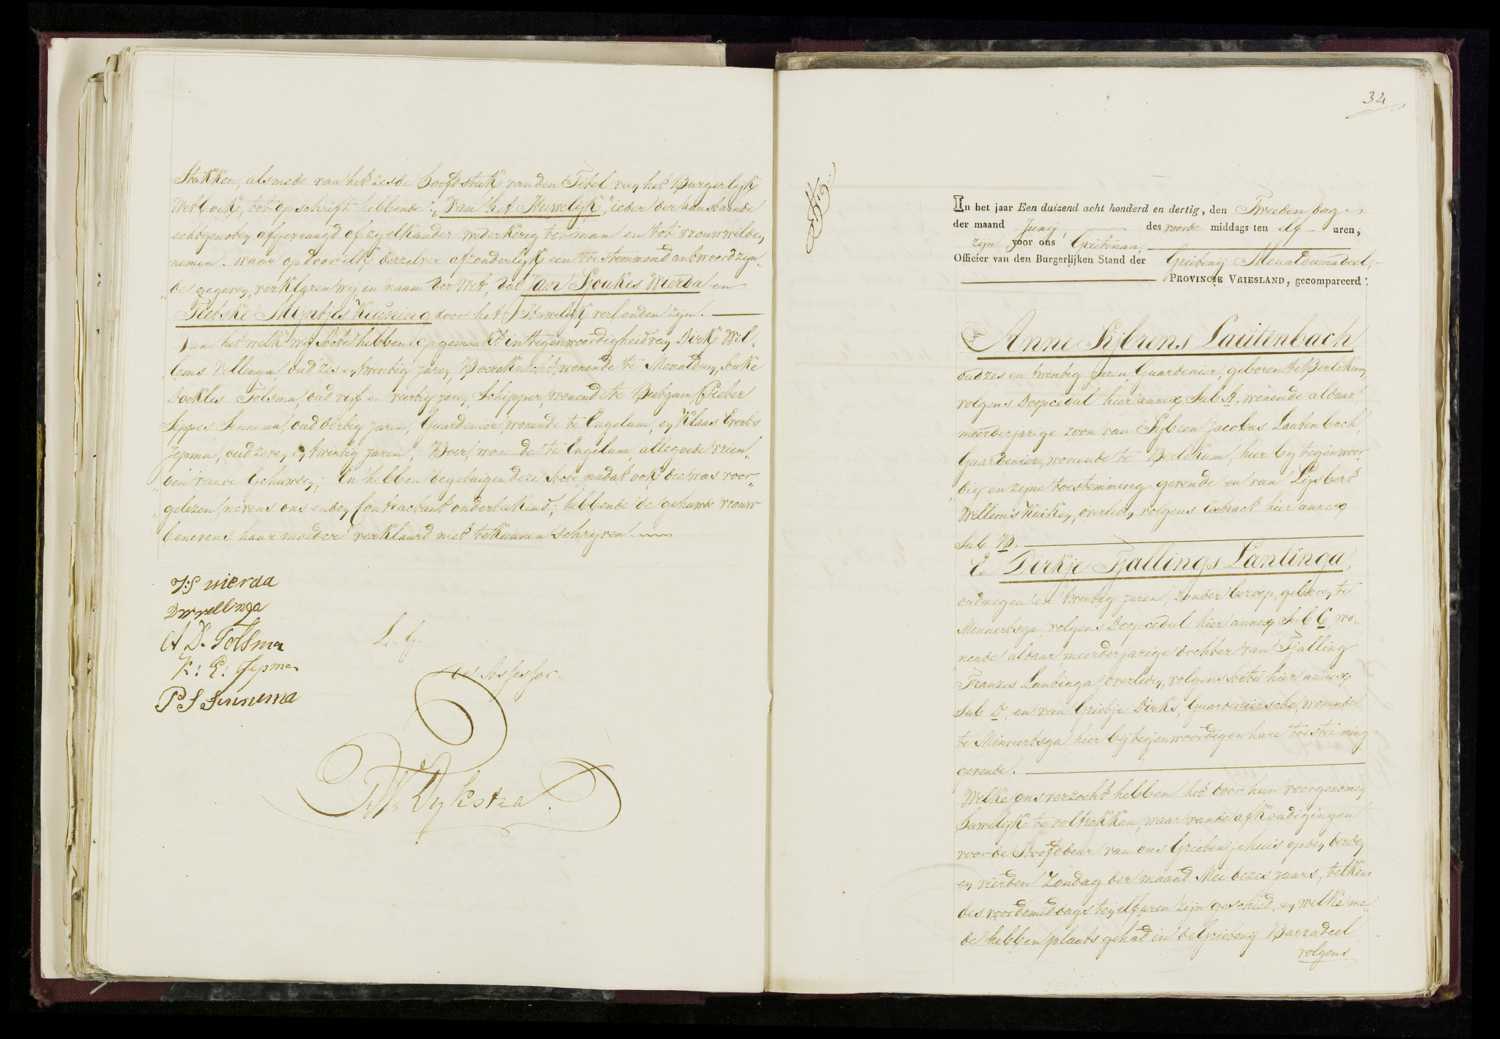 Stukken, alsmede van het zesde hoofdstuk van den Titel van het Burgerlijk
Wetboek, tot opschrift hebbende: "Van het Huwelijk", ieder der aanstaande
echtgenooten afgevraagd of zij elkander wederkerig tot man en tot vrouw wilden
nemen. Waar op door elk derzelver afzonderlijk een toestemmend antwoord zijn-
de gegeven, verklaren wij in naam der Wet, dat Jan Sjoukes Wierda en
door het Huwelijk verbonden zijn.
Van het welk wij Acte hebben opgemaakt in tegenwoordigheid van Dirk Wil-
lems Vellinga oud zes en twentig jaren, wonende te Menaldum, Auke
Doukles Tolsma, oud vijf en veertig jaren, Schipper, wonende te Pieter
Sippes Sinnema, oud dertig jaren, Gaardenier, wonende te Engelum, en Klaas Everts
Jepma, oud zeven en twentig jaren, Boer, wonende te Engelum, alle goede vrien-
den van de Gehuwden; en hebben de getuigen deze Acte, nadat ook dezelve was voor-
gelezen, nevens ons en den Contractant onderteekend; hebbende de gehuwde vrouw
benevens haar moeder verklaard niet te kunnen schrijven.
J S wierda
D W vellinga
A D. Tolsma
K: E: Jepma
P S Sinnema
L. G.
als Assessor.
Dykstra
34
In het jaar Een duizend acht honderd en dertig, den Tweeden dag
der maand Juny, des voorde middags ten elf uren,
zijn voor ons Grietman,
Officier van den Burgerlijken Stand der Grietenij Menaldumadeel,
PROVINCIE VRIESLAND, gecompareerd:
Anne Sijbrens Lautenbach
oud zes en twentig jaren Gaardenier, geboren te Berlikum,
volgens Doopcedul hier annex Sub A. wonende aldaar
meerderjarige zoon van Sijbren Jacobus Lautenbach,
Gaardenier, wonende te Berlikum, hier bij tegenwoor-
dig en zijne toestemming gevende en van Lijsbert
Willems Kuiken, overleden volgens extract hier annex
Sub B.
En Dirkje Tjallings Lantinga,
oud negen en twentig jaren, zonder beroep, geboren te
Minnertsga, volgens Doopcedul hier annex Sub C, wo-
nende aldaar meerderjarige dochter van Tjalling
Franzes Lantinga, overleden, volgens acte hier annex
Sub D, en van Grietje Dirks, Gaardeniersche, wonende
te Minnertsga hier bij tegenwoordig en hare toestemming
gevende.
Welke ons verzocht hebben het door hun voorgenomen
Huwelijk te voltrekken, waar van de afkondigingen
voor de Hoofddeur van ons Grietenijehuis op den derden
en vierden Zondag der maand Mei dezes jaars, telkens
des voordemiddags te elf uren zijn geschied, en welke me-
de hebben plaats gehad in de Grietenij Barradeel
volgens